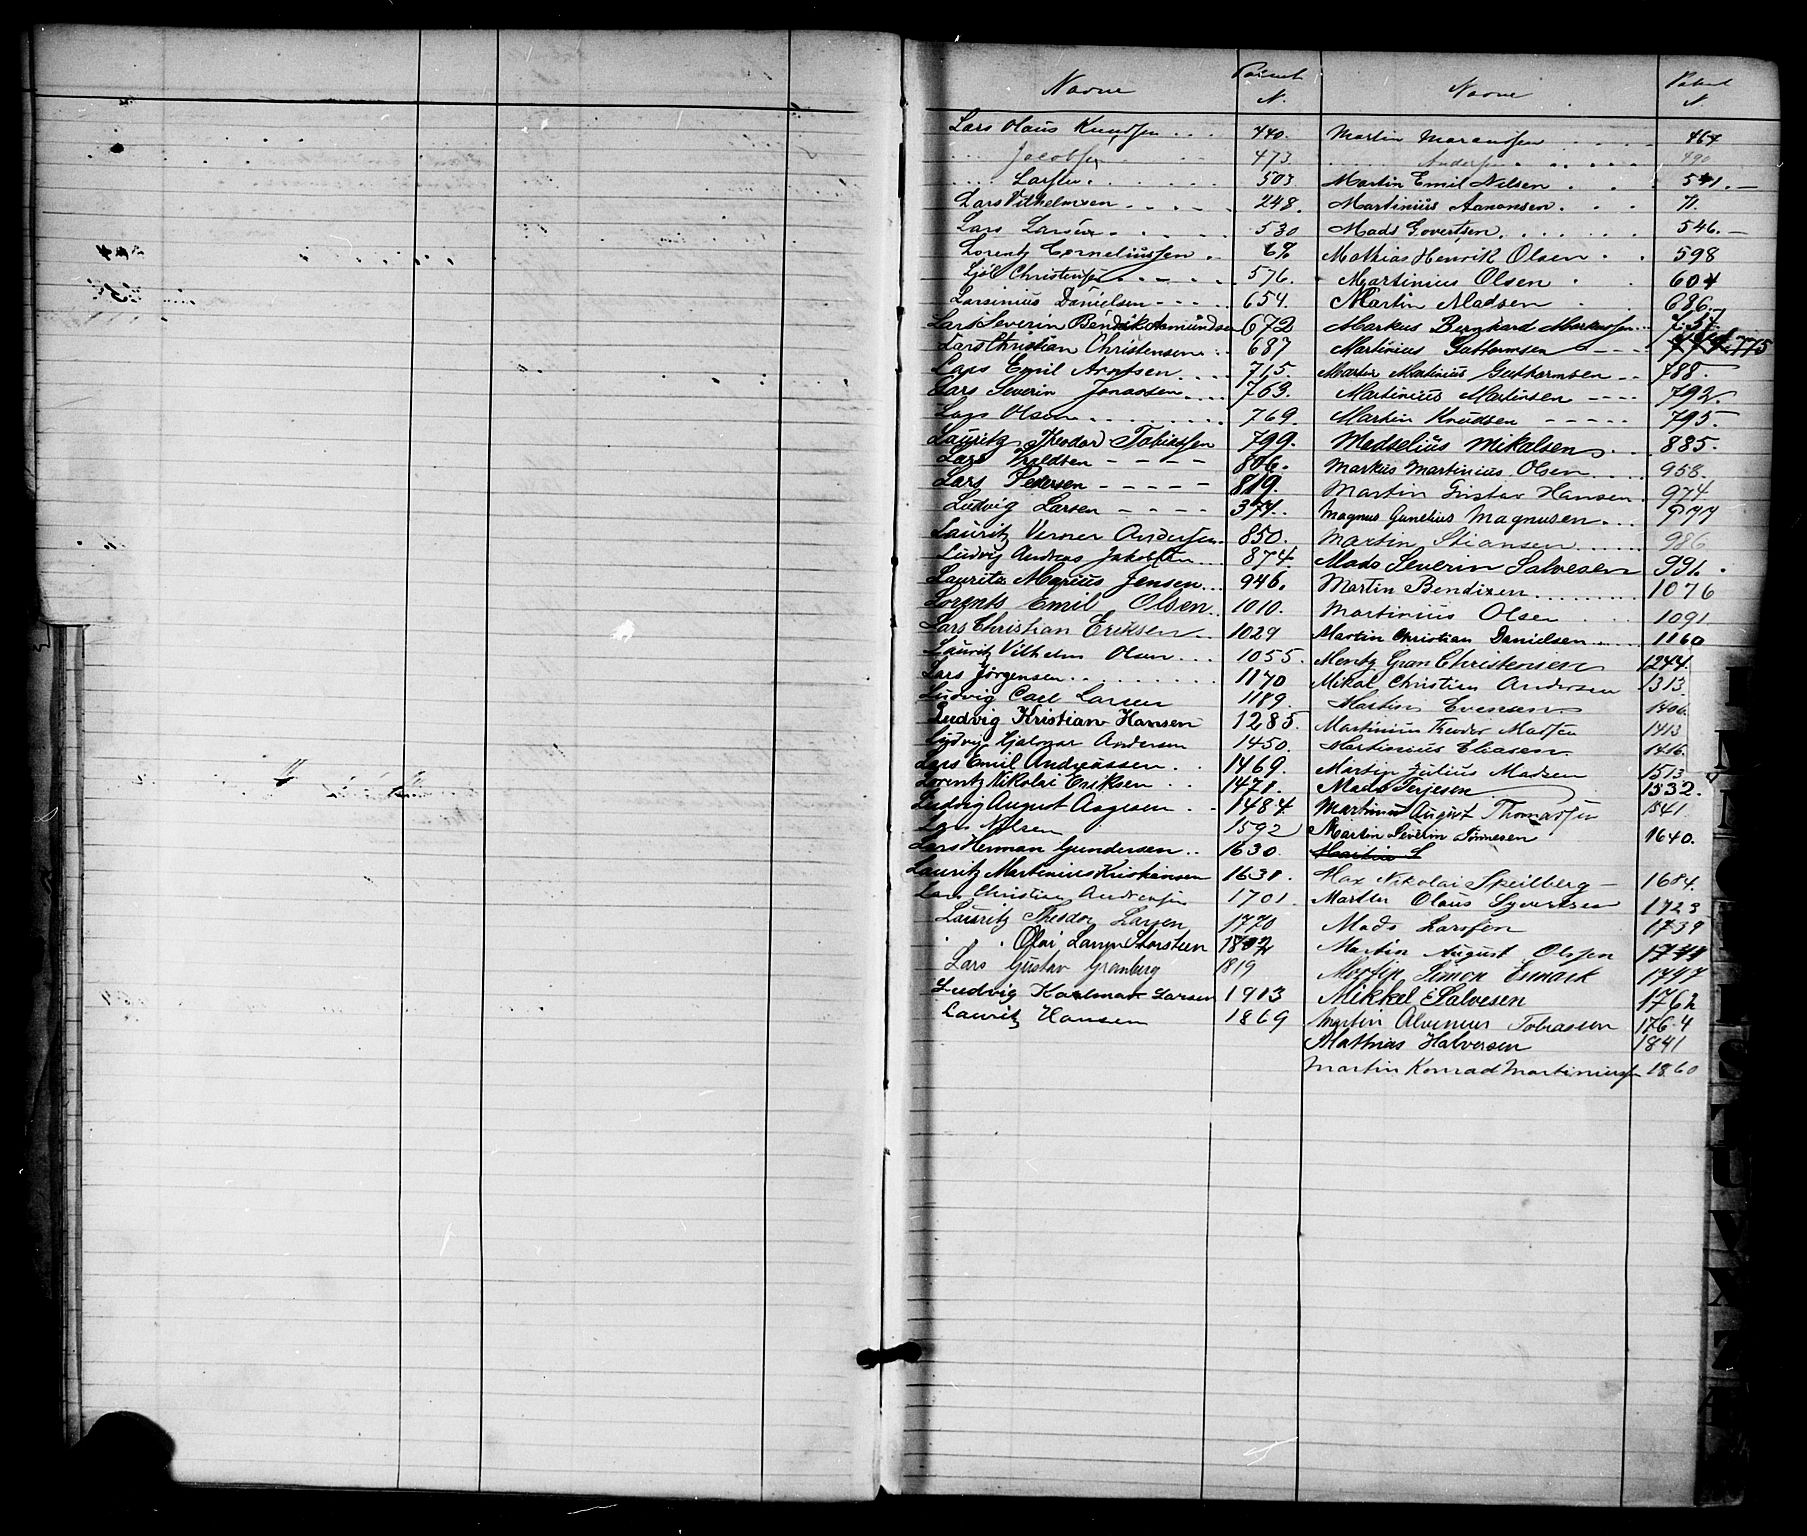 Navne N. Navne N
Lars Olaus Knudsen . . . 440. Martin Marensen . . . . . 464
. . . Jacobsen . . . 473 . . . . . Anders . . . . . 490
. . . . Larsen . . . . . . . 503 Martin Emil Nilsen . . . 541. -
Lars Vilhelmsen . . . . . 248. Martinius Aanonsen . . . 71.
Lars Larsen . . . . . 530 Mads Govertsen . . . . . . 546. -
Lorentz Corneliussen . . Mathias Henrik Olsen . . 598
Christensen . . . . 576. Martinius Olsen . . 604
Larsinius Danielsen - - - - 654. Martin Madsen . 686.
Lars Severin Bendik Asmundsen 672 Markus Bernhard Markussen
Lars Christian Christensen . . 687 Martinius Guttormsen - - - 775
Lars Emil Arntsen . . . . 715. Martin Matinius Guthormsen - - 788.
Lars Severin Jonassen . . . . 763. Martinius Martinsen - - - - 792.
Lars Olsen . . . . . . 769. Martin Knudsen - - - - - 795.
Lauritz Theodor Tobiassen 799. Medselius Mikalsen . . . 885.
Lars - - - - 806. Markus Martinius Olsen . . . . 958.
Lars Pedersen - - - - - 819. Martin Gustav Hansen . 974.
Ludvig Larsen - - - - 374. Magnus Gunelius Magnusen . . . 977
Lauritz Verner Andersen . . 850. Martin Stiansen . . . . . . 986
Ludvig Andreas Jakobsen . . . . 874. Mads Severin Salvesen 991. .
Lauritz Marius Jensen . . . 946. Martin Bendixen . . . . . . . . . 1076
Lorents Emil Olsen . . 1010. Martinius Olsen . . . 1091
Lars Christian Eriksen - . 1029 Martin Christian Danielsen . . . . . 1160
Lauritz Vilhelm Olsen . . . 1055. Mentz Gran Christensen 1244.
Lars Jörgensen . . . . . . . . . 1170 Mikal Christian Andersen 1313.
Ludvig Carl Larsen 1189. Martin Evensen 1406.
Ludvig Kristian Hansen 1285. Martinius Theodor Madsen 1413
Ludvig Hjalmar Andersen 1450. Martinius Eliasen 1416.
Lars Emil Andreassen . . 1469. Martin Julius Madsen 1513
Lorentz Nikolai Eriksen . . 1471. Mads Terjesen 1532.
Ludvig August Aagesen . . 1484. Martinus August Thomassen 1541
Lars Nilsen 1592 Martin Severin Sörensen 1640.
Lars Herman Gundersen . . 1630. Martin S
Lauritz Martinius Kristiansen 1638. Max Nikolai Speilberg - 1684.
Lars Christian Andreasen 1701. Martin Olaus Syvertsen 1723
Lauritz Theodor Larsen 1770 Mads Larssen 1739
. . Olai Larsen Storsteen 1802 Martin August Olssen 1741
Lars Gustav Granberg 1819 Martin Simon Esmark 1747
Ludvig Karlmar Larsen 1913 Mikkel E Salvesen 1762
Lauritz Hansen 1869 Martin Alvenius Tobiassen 1764
Mathias Halversen 1841
Martin Konrad Martiniussen 1860